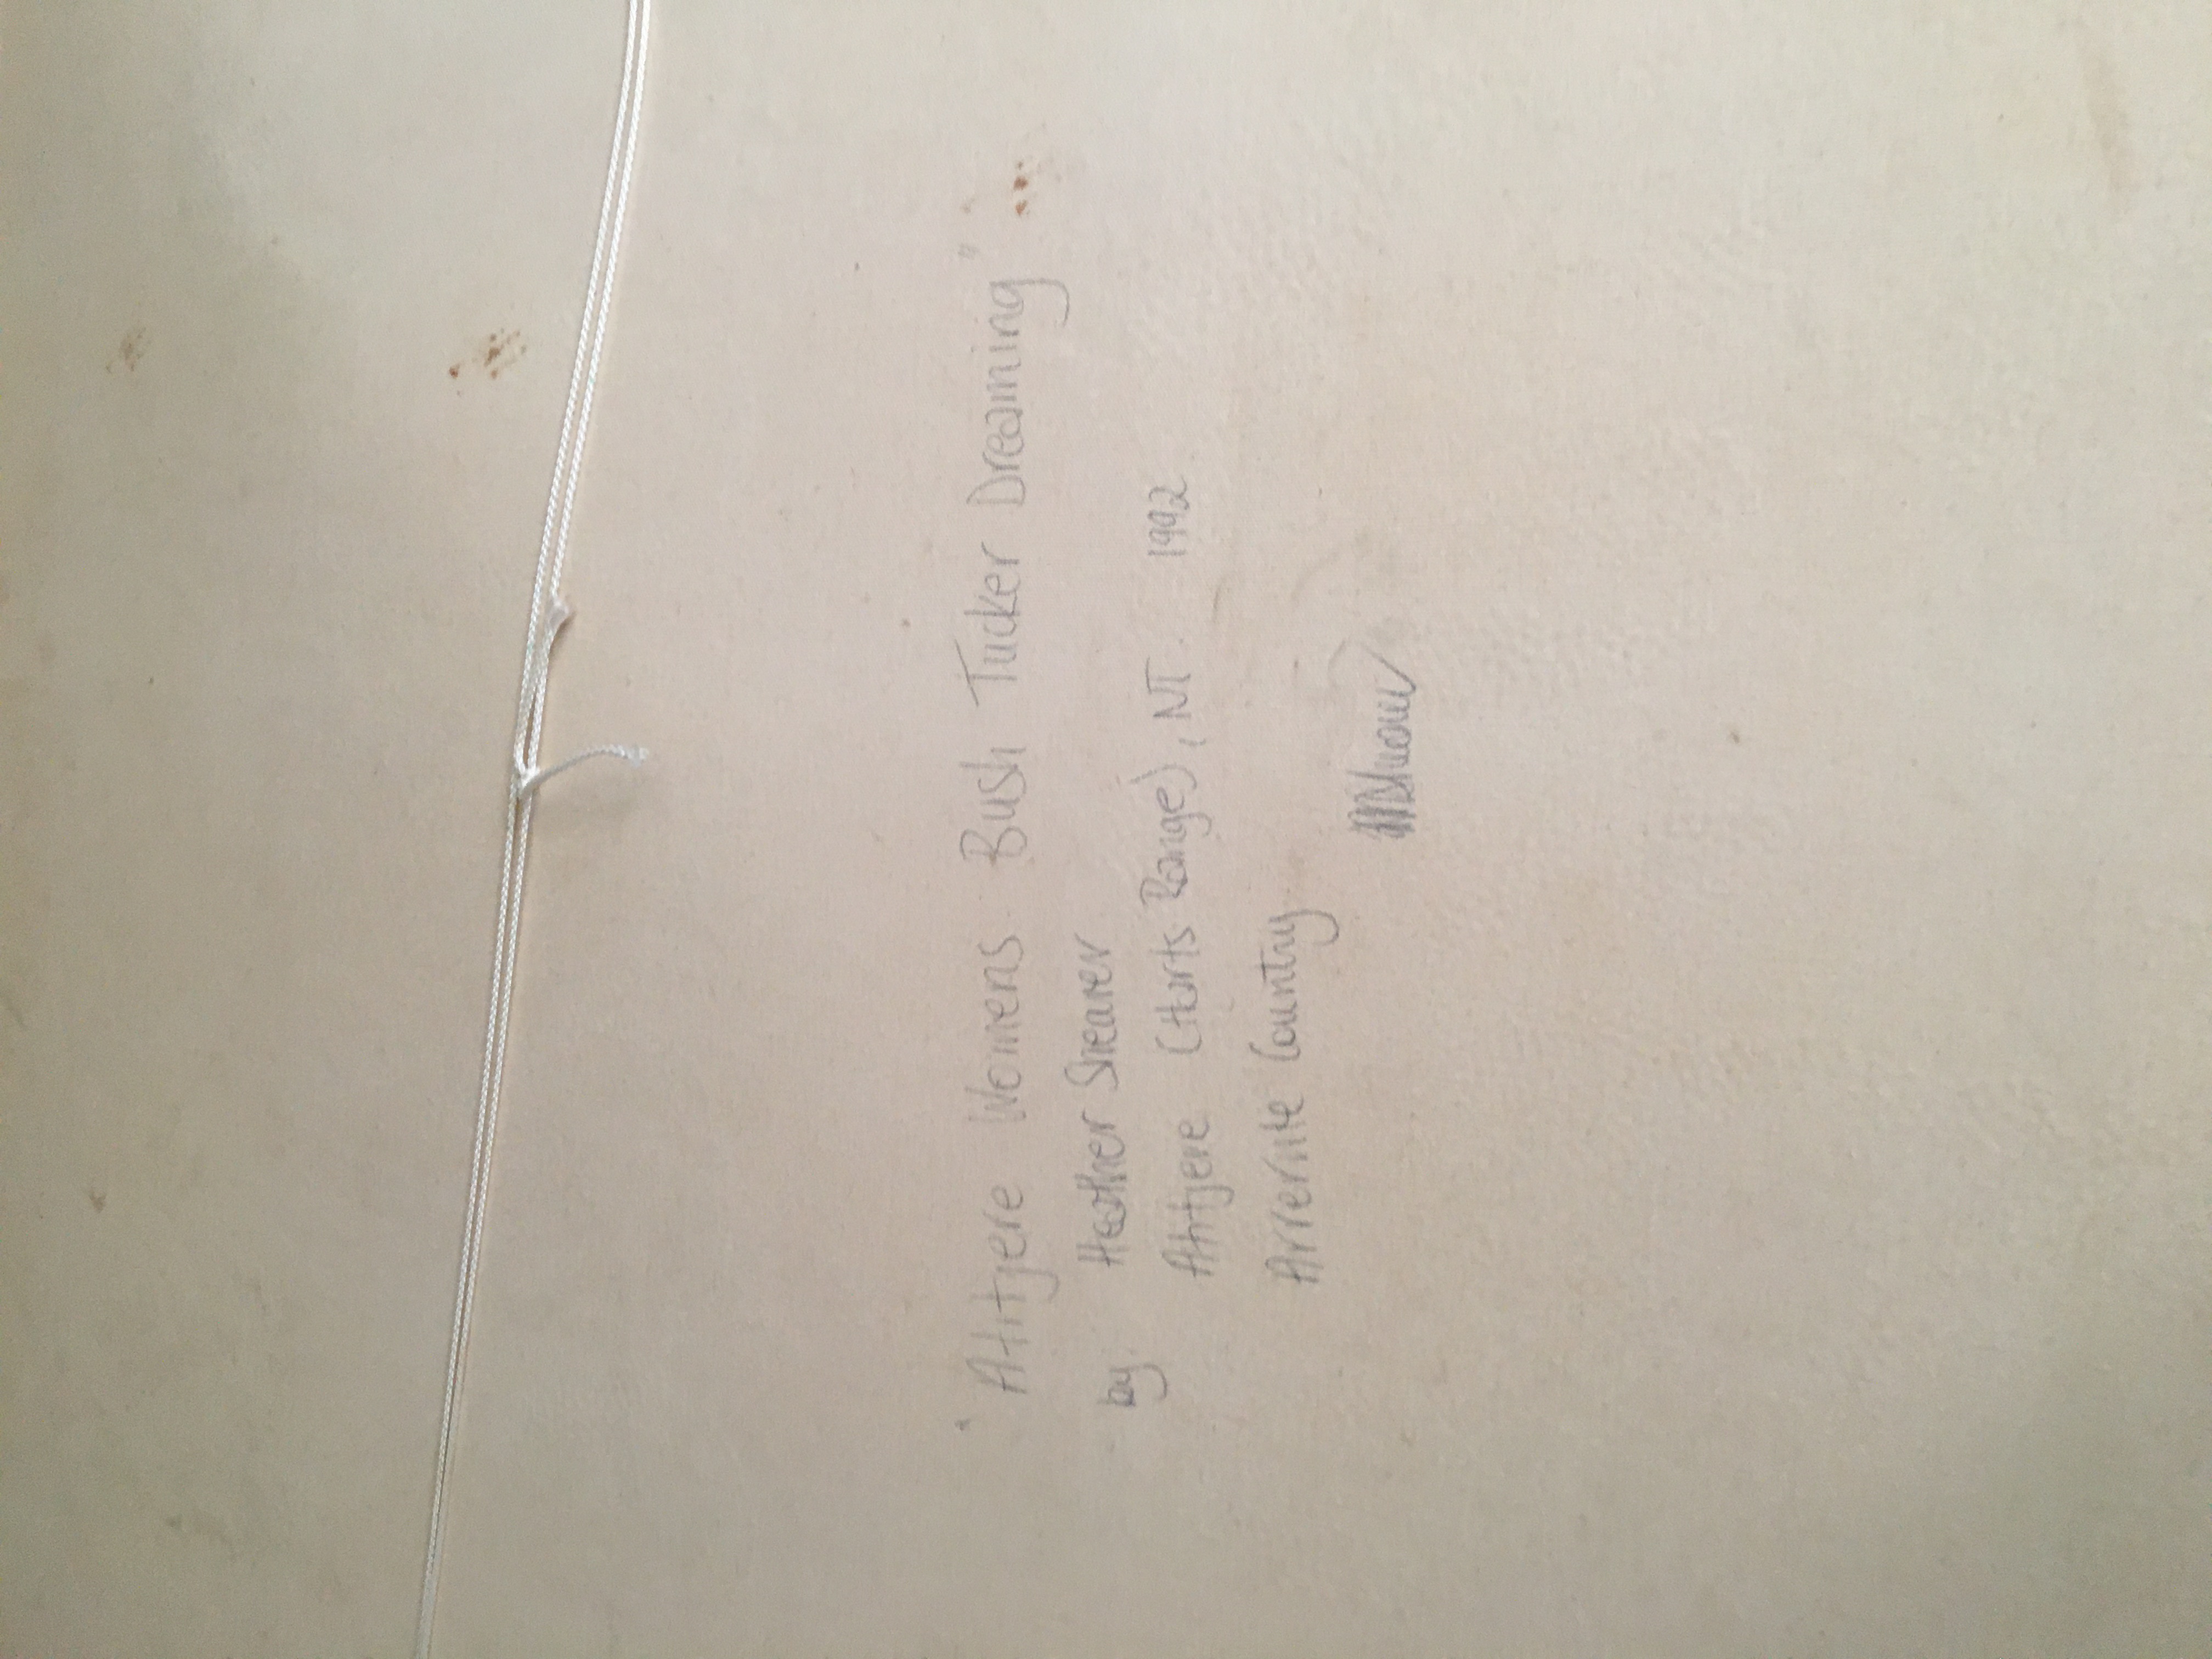 "Atitjere Womens Bush Tucker Dreaming"
by Heather Shearer
Atitjere (Harts Range), NT. 1992
Arrernte Country